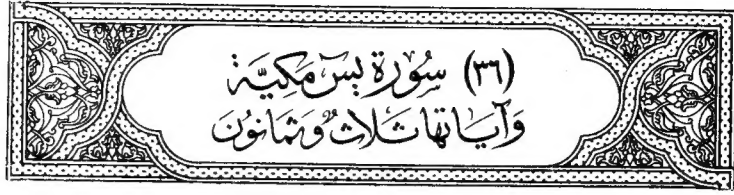 (٣٦) سُورَة يسٓ مَكيَّة
وَآيَاتهَا ثَلاثٌ وَثَمَانونَ